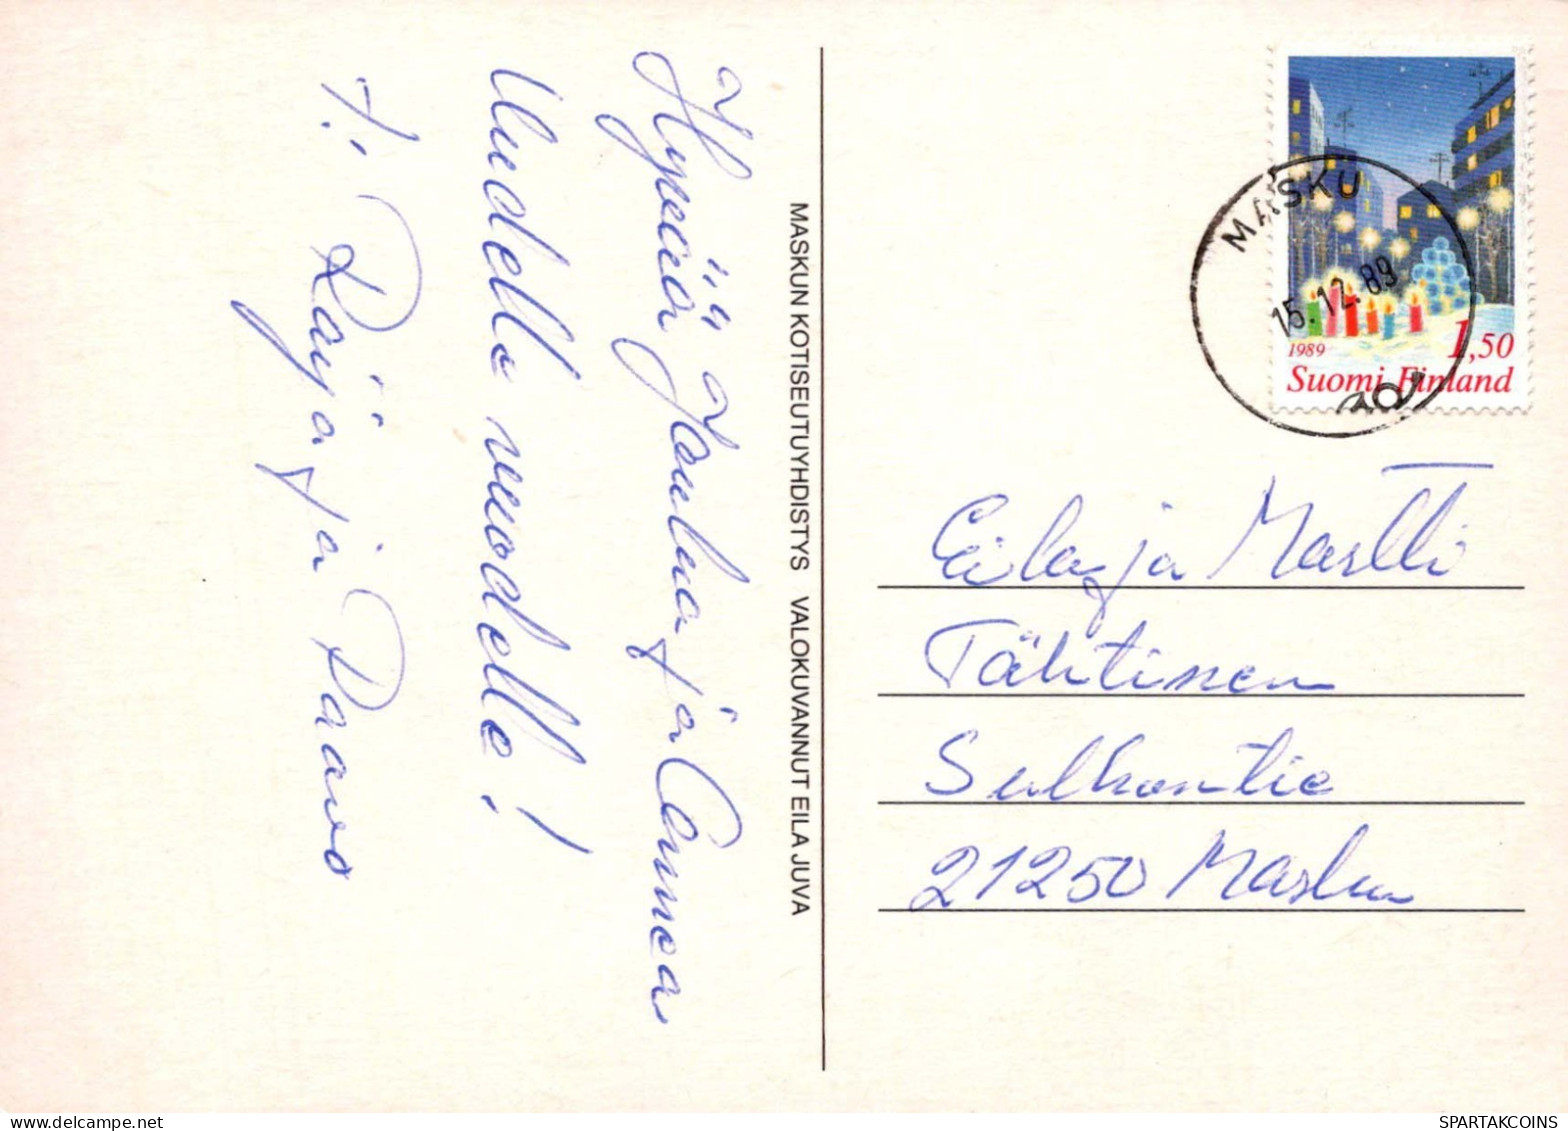 Hyvää Joulua ja Onnea
Uudelle vuodelle!
T. Raija ja Paavo
MASKUN KOTISEUTUYHDISTYS VALOKUVANNUT EILA JUVA
MASKU
15.12.89
1989
1,50
Suomi Finland
Eila ja Martti
Tähtinen
Sulkontie
21250 Masku
SPARTAKCOINS